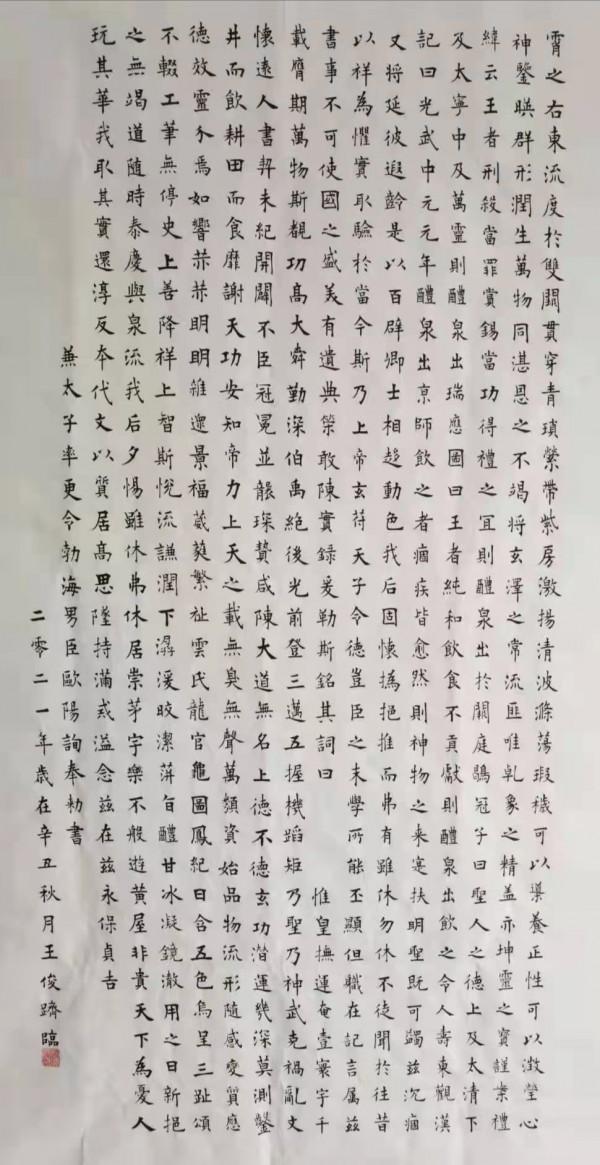 霄之右東流度於雙闕貫穿青瑣縈帶紫房激揚清波滌蕩瑕穢可以導養正性可以澂瑩心
神鑒暎群形潤生萬物同湛恩之不竭將玄澤之常流匪唯乹象之精盖亦坤靈之寶謹案禮
緯云王者刑殺當罪賞錫當功得禮之冝則醴泉出於闕庭鶡冠子曰聖人之德上及太清下
及太寧中及萬靈則醴泉出瑞應圖曰王者純和飲食不貢獻則醴泉出飲之令人壽東觀漢
記曰光武中元元年醴泉出京師飲之者痼疾皆愈然則神物之来寔扶明聖既可蠲茲沉痼
又將延彼遐齡是以百辟卿士相趍動色我后固懷撝挹推而弗有雖休勿休不徒聞於往昔
以祥為懼實取驗於當今斯乃上帝玄符天子令德豈臣之末學所能丕顯但職在記言属茲
書事不可使國之盛美有遺典策敢陳實録爰勒斯銘其詞曰 惟皇撫運奄壹寰宇千
載膺期萬物斯覩功高大舜勤深伯禹絶後光前登三邁五握機蹈矩乃聖乃神武克禍亂文
懷遠人書契未紀開闢不臣冠冕並襲琛贄咸陳大道無名上德不德玄功潜運幾深莫測鑿
井而飲耕田而食靡謝天功安知帝力上天之載無臭無聲萬類資始品物流形隨感變質應
德效靈介焉如響赫赫明明雜遝景福葳蕤繁祉雲氏龍官龜圖鳳紀日含五色烏呈三趾頌
不輟工筆無停史上善降祥上智斯悅流謙潤下潺湲皎潔蓱旨醴甘冰凝鏡澈用之日新挹
之無竭道隨時泰慶與泉流我后夕惕雖休弗休居崇茅宇樂不般遊黃屋非貴天下為憂人
玩其華我取其實還淳反本代文以質居高思墜持滿戒溢念茲在茲永保貞吉
兼太子率更令勃海男臣歐陽詢奉勑書
二零二一年歲在辛丑秋月王俊躋臨